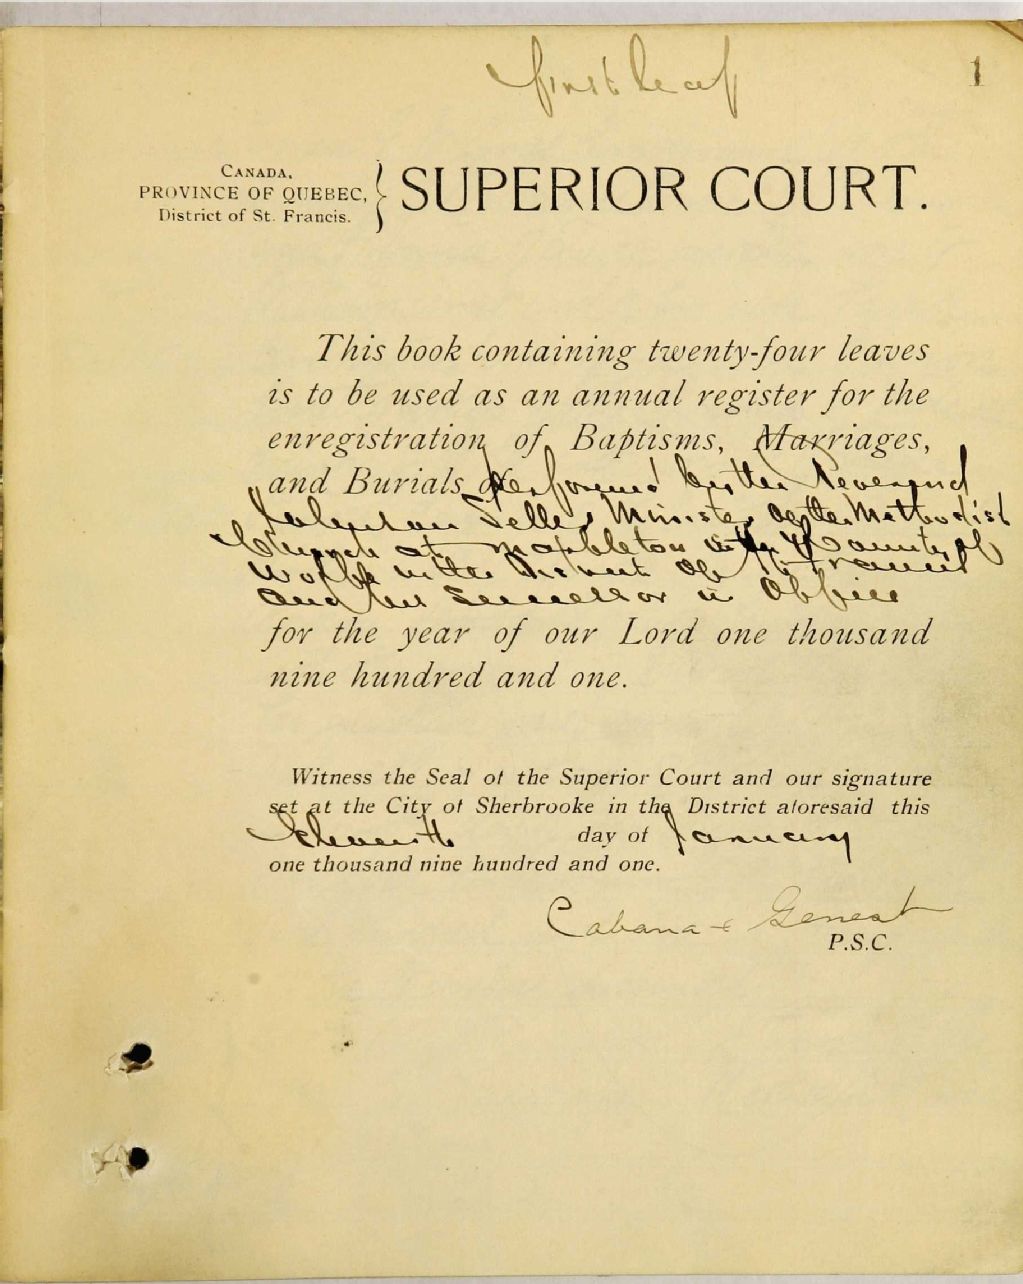 first leaf
1
CANADA,
PROVINCE OF QUEBEC,
District of St. Francis.
SUPERIOR COURT.
This book containing twenty-four leaves
is to be used as an annual register for the
enregistration of Baptisms, Marriages,
and Burials performed by the Reverend
Minister of the Methodist
Church at Mapleton in the County of
Wolfe in the District of St Francis
and his successor in Office
for the year of our Lord one thousand
nine hundred and one.
Witness the Seal of the Superior Court and our signature
set at the City of Sherbrooke in the District aforesaid this
Eleventh day of January
one thousand nine hundred and one.
Cabana & Genest
P.S.C.